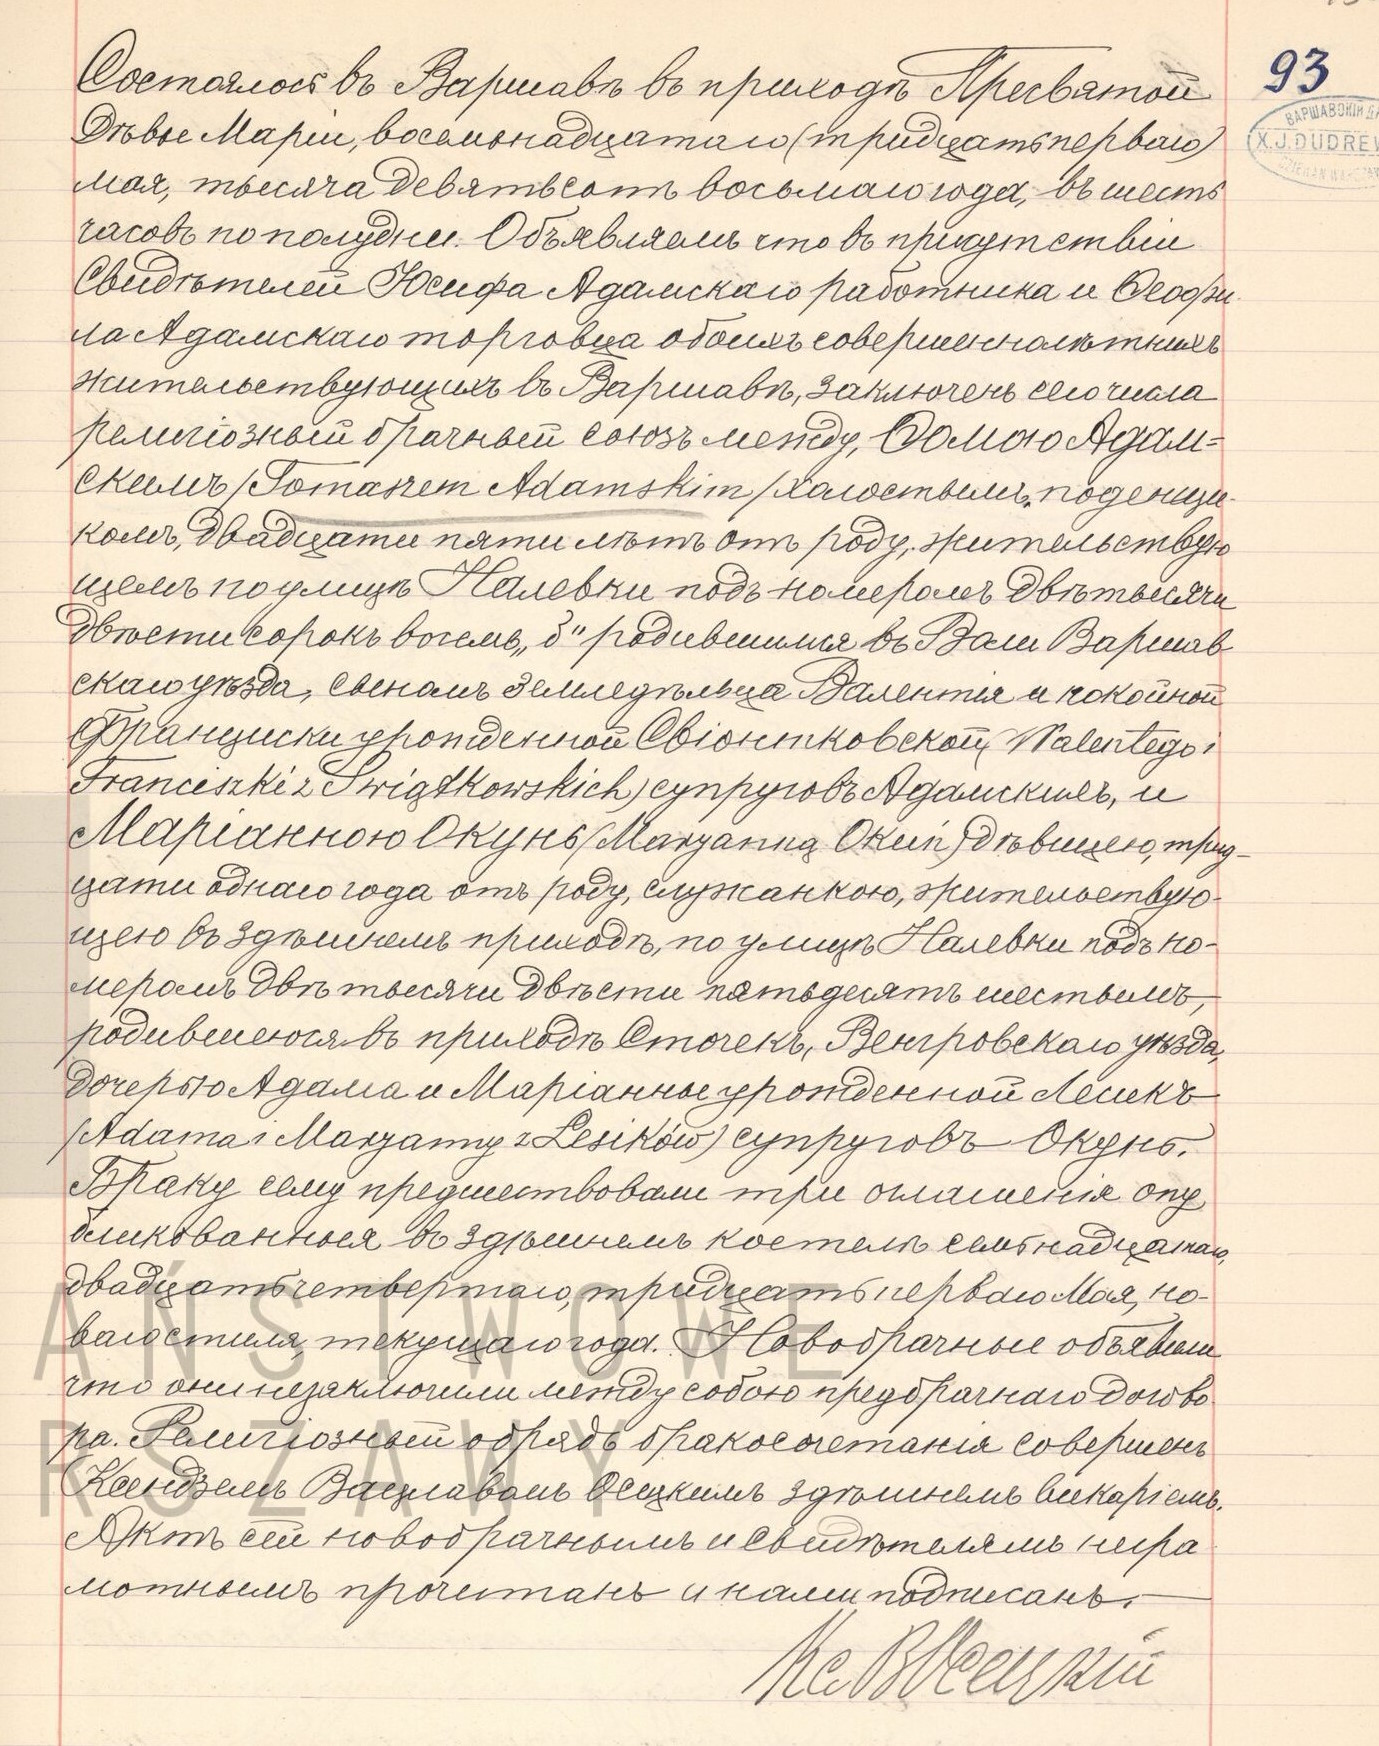 Состоялось въ Варшавѣ въ приходѣ Пресвятой
Дѣвы Маріи, восемьнадцатаго (тридцать перваго)
мая, тысяча девятьсотъ восьмаго года, въ шесть
часовъ по полудни. Объявляемъ что въ присутствіи
Свидѣтелей Юсифа Адамскаго работника и Ѳеофи-
ла Адамскаго торговца обоихъ совершеннолѣтнихъ
жительствующихъ въ Варшавѣ, заключенъ сего числа
религіозный брачный союзъ между, Ѳомою Адам=
скимъ /Tomaszem Adamskim/ холостымъ, поденщи-
комъ, двадцати пяти лѣтъ отъ роду, жительствую
щемъ по улицѣ Налевки подъ номеромъ двѣ тысячи
двѣсти сорокъ восемь „б" родившимся въ Воли Варшав
скаго уѣзда, сыномъ земледѣльца Валентія и покойной
Францишки урожденной Свіонтковской (Walentego i
Franciszki z Świątkowskich) супруговъ Адамскихъ, и
Маріанною Окунь (Maryanną Okuń) дѣвицею, трид-
цати однаго года отъ роду, служанкою, жительствую-
щею въ здѣшнемъ приходѣ, по улицѣ Налевки подъ но-
меромъ двѣ тысячи двѣсти пятьдесятъ шестымъ,
родившеюся въ приходѣ Сточекъ, Венгровскаго уѣзда,
дочерью Адама и Маріанны урожденной Лесикъ
/Adama i Maryanny z Lesików) супруговъ Окунь.
Браку сему предшествовали три оглашенія опу
бликованныя въ здѣшнемъ костелѣ семьнадцатаго,
двадцать четвертаго, тридцать перваго Мая, но-
ваго стиля, текущаго года. Новобрачные объявили
что они не заключили между собою предбрачнаго догово
ра. Религіозный обрядъ бракосочетанія совершенъ
Ксендземъ Вацлавомъ Осецкимъ здѣшнемъ викаріемъ.
Актъ сей новобрачнымъ и свидѣтелямъ негра
мотнымъ прочитанъ и нами подписанъ.
Кс. В Осецкій
93
ВАРШАВСКІЙ
X. J. DUDREW
AŃSTWOWE
RSZAWY